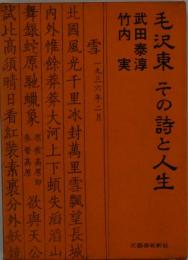 毛沢東 その詩と人生
武田泰淳
竹内 実
文藝春秋新社
雪 一九三六年二月
北國風光千里冰封萬里雪飄望長城
内外惟餘莽莽大河上下頓失滔滔山
舞銀蛇原馳蠟象 原指高原即秦晉高原 欲與天公
試比高須晴日看紅裝素裹分外妖嬈